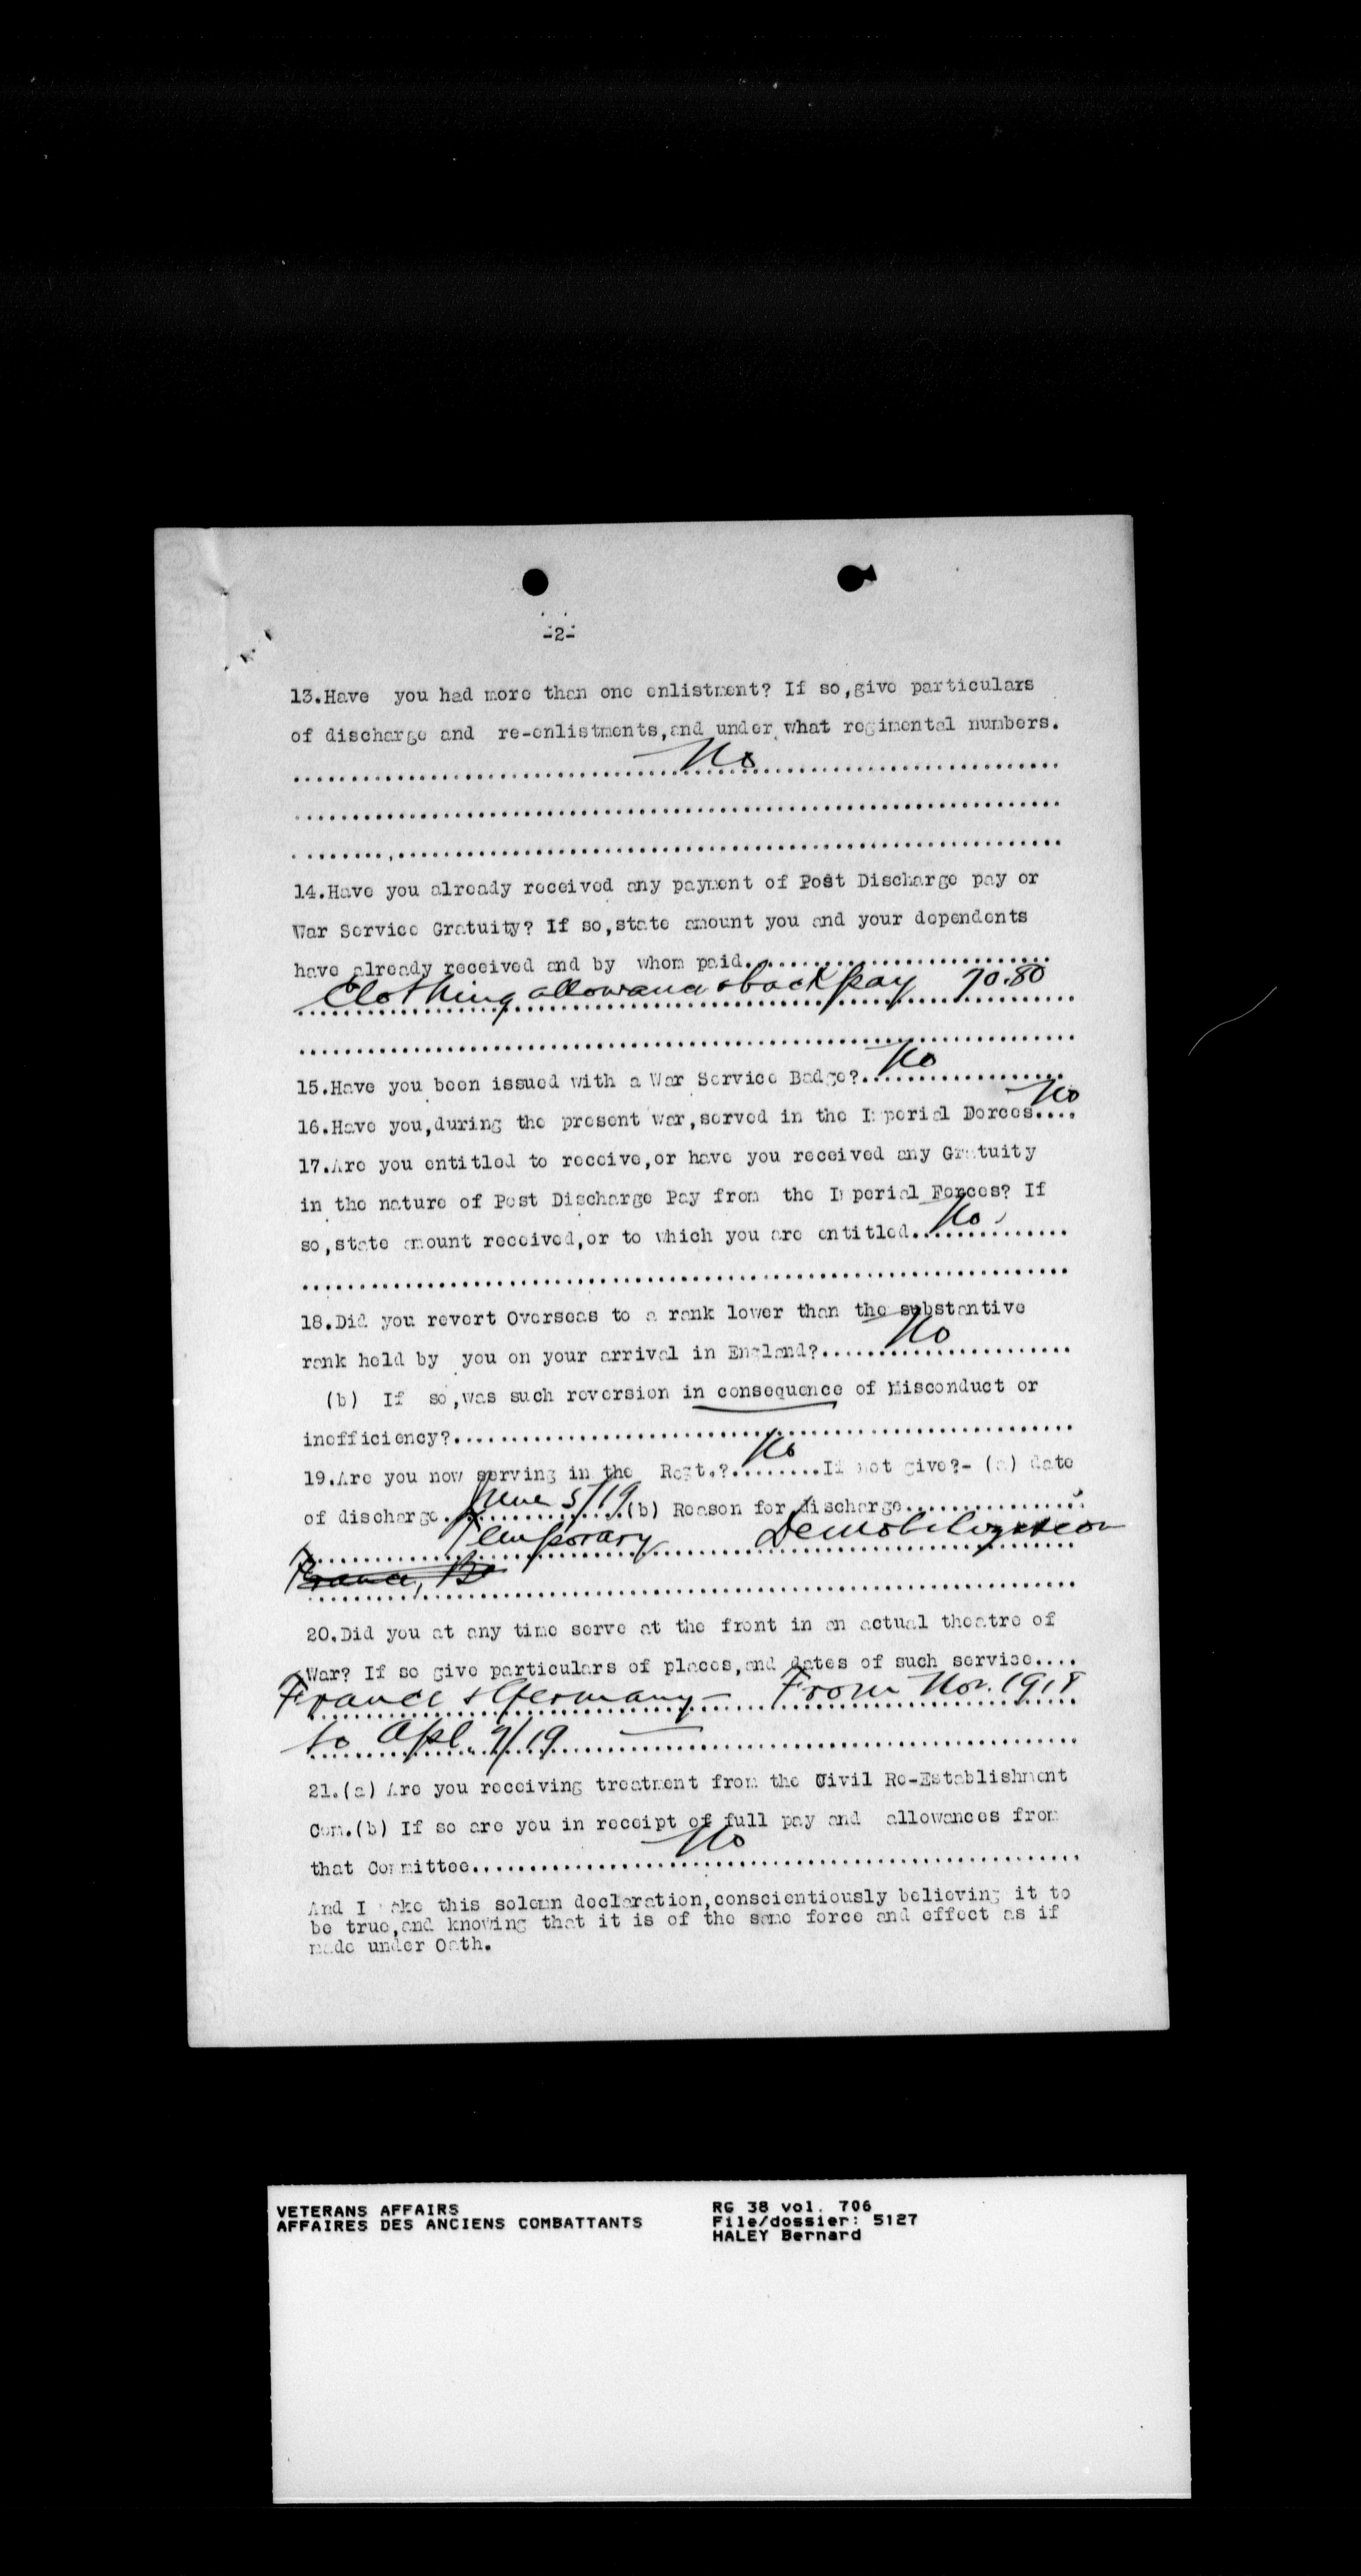 -2-
13.Have you had more than one enlistment? If so,give particulars
of discharge and re-enlistments,and under what regimental numbers.
No
14.Have you already received any payment of Post Discharge pay or
War Service Gratuity? If so,state amount you and your dependents
have already received and by whom paid.
Clothing allowance & back pay 70.80
15.Have you been issued with a War Service Badge? No
16.Have you,during the present war,served in the Imperial Dorces.... No
17.Are you entitled to receive,or have you received any Gratuity
in the nature of Post Discharge Pay from the Imperial Forces? If
so,state amount received,or to which you are entitled. No
18.Did you revert Overseas to a rank lower than the substantive
rank held by you on your arrival in England? No
(b) If so,was such reversion in consequence of Misconduct or
inefficiency?
19.Are you now serving in the Regt.? No If not give?- (a) date
of discharge. June 5/19 (b) Reason for discharge
Temporary Demobilization
France, Be
20.Did you at any time serve at the front in an actual theatre of
War? If so give particulars of places,and dates of such service....
France & Germany - From Nov. 1918
to Apl. 9/19
21.(a) Are you receiving treatment from the Civil Re-Establishment
Com.(b) If so are you in receipt of full pay and allowances from
that Committee. No
And I make this solemn declaration,conscientiously believing it to
be true,and knowing that it is of the same force and effect as if
made under Oath.
VETERANS AFFAIRS
AFFAIRES DES ANCIENS COMBATTANTS
RG 38 vol. 706
File/dossier: 5127
HALEY Bernard